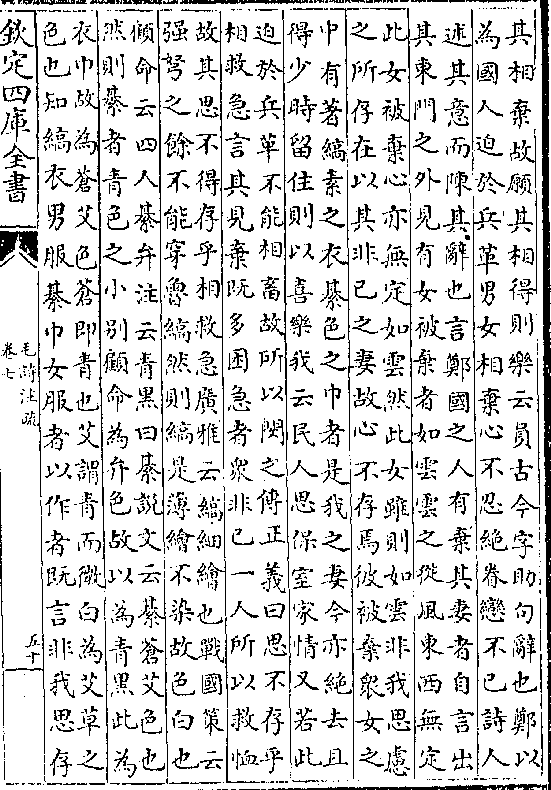 其相棄故願其相得則樂云員古今字助句辭也鄭以
為國人迫於兵革男女相棄心不忍絶眷戀不已詩人
述其意而陳其辭也言鄭國之人有棄其妻者自言出
其東門之外見有女被棄者如雲雲之從風東西無定
此女被棄心亦無定如雲然此女雖則如雲非我思慮
之所存在以其非己之妻故心不存焉彼被棄衆女之
中有著縞素之衣綦色之巾者是我之妻今亦絶去且
得少時留住則以喜樂我云民人思保室家情又若此
迫於兵革不能相畜故所以閔之傳正義曰思不存乎
相救急言其見棄既多困急者衆非己一人所以救恤
故其思不得存乎相救急廣雅云縞細繒也戰國策云
强弩之餘不能穿魯縞然則縞是薄繒不染故色白也
顧命云四人綦弁注云青黑曰綦說文云綦蒼艾色也
然則綦者青色之小别顧命為弁色故以為青黑此為
衣巾故為蒼艾色蒼即青也艾謂青而微白為艾草之
色也知縞衣男服綦巾女服者以作者既言非我思存
欽定四庫全書
毛詩注疏
卷七
五十